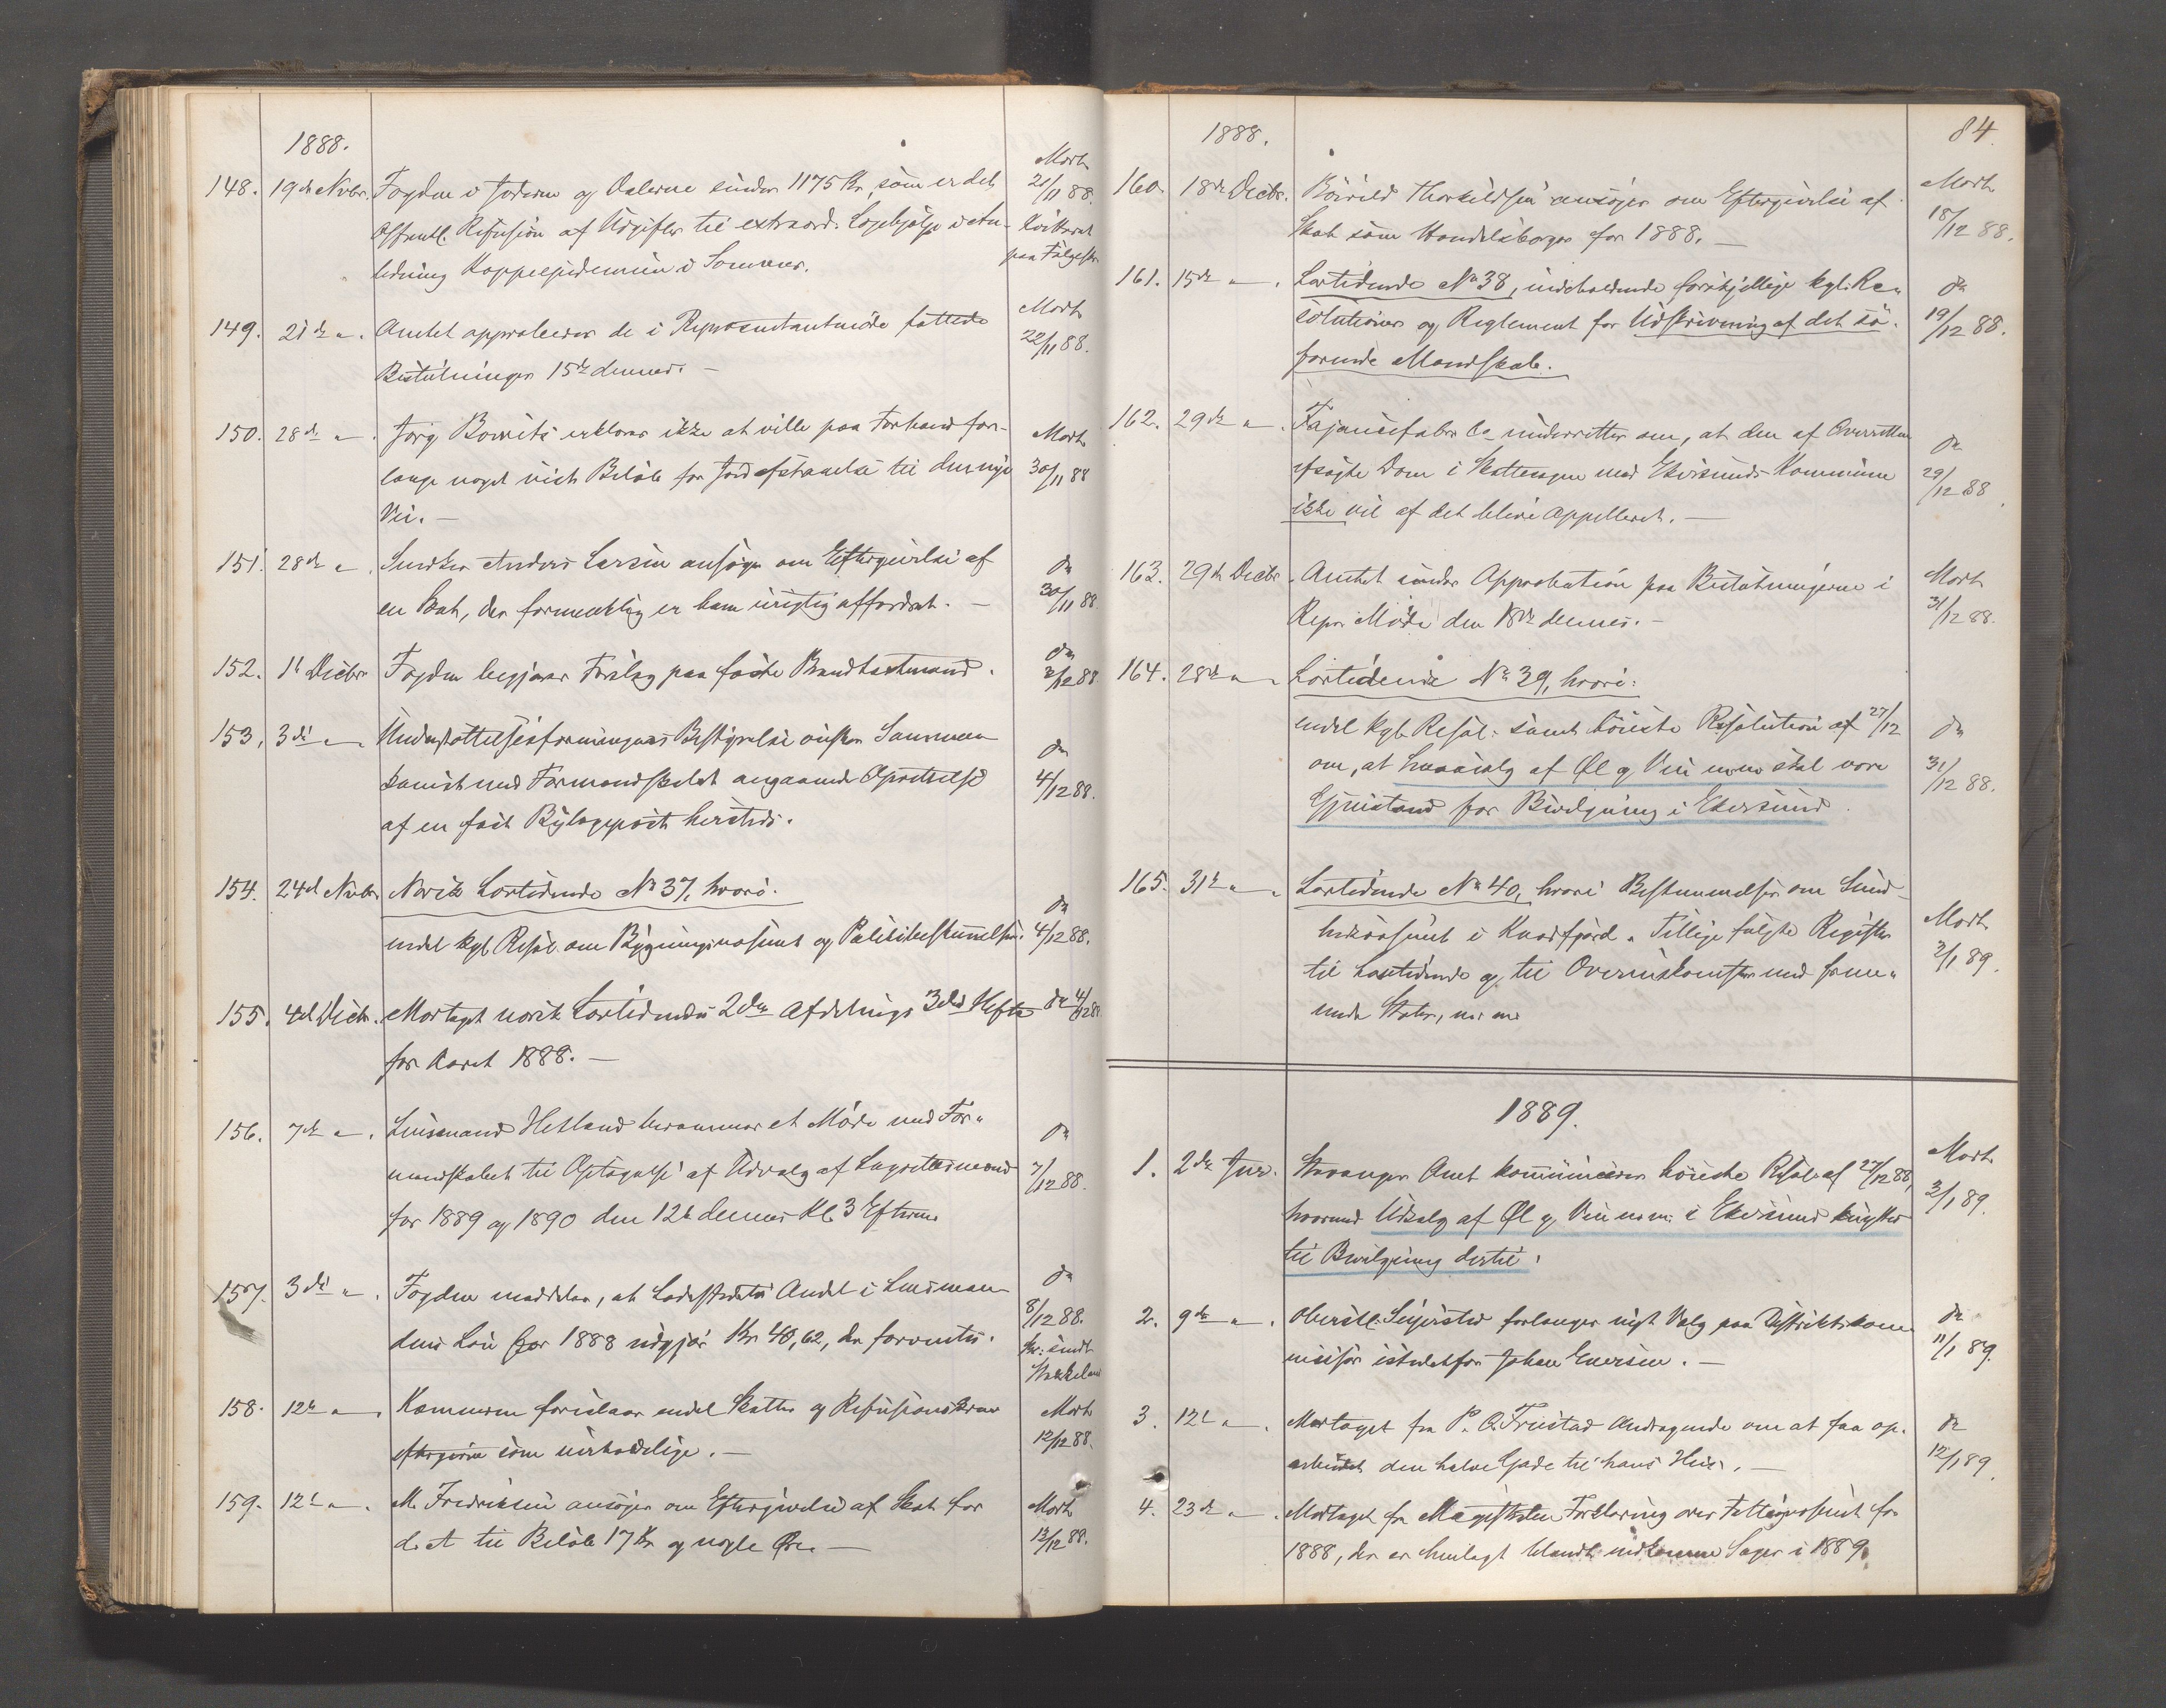 1888.
148. 19de Nvbr. Fogden i Jæderen og Dalerne sender 1175 Kr, som er det Modt. 21/11 88.
Offentl. Refusion af Udgifter til extraord. Lægehjælp i An- Kvitteret
ledning Koppeepidemien i Sommer. paa Følgeskr.
149. 21de " . Amtet approberer de i Repræsentantmöde fattede Modt. 22/11 88.
Beslutninger 15de dennes. —
150. 28de " . Jörg. erklærer ikke at ville paa Forhaand for- Modt.
lange noget vist Beløb for Jordafstaaelse til den nye 30/11 88
Vei. —
151. 28de " . Anders Larsen ansöger om Eftergivelse af do
en Skat, der formentlig er ham urigtig affordret. — 30/11 88.
152. 1ste Decbr. Fogden begjærer Forslag paa faste Brandtaxtmænd. do 3/12 88.
153. 3die " . Understøttelsesforeningens Bestyrelse önsker Sammen- do
komst med Formandskabet angaaende Oprettelse 4/12 88.
af en fast herstedes.
154. 24de Nvbr. Norsk Lovtidende No 37, hvori: do
endel kgl. Resol. om Bygningsvæsenet og Politibestemmelser. 4/12 88.
155. 4de Decbr. Modtaget norsk Lovtidendes 2den Afdelings 3die Hefte do 4/12 88
for Aaret 1888. —
156. 7de " . Lensmand Hetland berammer et Möde med For- do
mandskabet til Optagelse af Udvalg af Lagrettemænd 7/12 88.
for 1889 og 1890 den 12te dennes Kl. 3 Efterm.
157. 3die " . Fogden meddeler, at Ladestedets Andel i Lensman- do 8/12 88.
dens Lön for 1888 udgjör Kr. 40,62, der forventes. sendt
158. 12te " . Kæmneren foreslaar endel Skatter og Refusionskrav Modt.
eftergivne som uerholdelige. — 12/12 88.
159. 12te " . M. Fredriksen ansöger om Eftergivelse af Skat for Modt.
d. A. til Beløb 17 Kr og nogle Öre. — 13/12 88.
84.
1888.
160. 18de Decbr. Thorkildsen ansöger om Eftergivelse af Modt.
Skat som Handelsborger for 1888. — 18/12 88.
161. 15de " . Lovtidende No 38, indeholdende forskjellige kgl. Re- do
solutioner og Reglement for Udskrivning af det sö- 19/12 88.
farende Mandskab.
162. 29de " . Fajancefabr. Co underretter om, at den af Overretten do
afsagte Dom i Skattesagen mod Ekersunds Kommune 29/12 88.
ikke vil af det blive appelleret. —
163. 29de Decbr. Amtet sender Approbation paa Beslutningerne i Modt.
Repr. Möde den 18de dennes. — 31/12 88.
164. 28de " . Lovtidende No 39, hvori:
endel kgl. Resol. samt höieste Resolution af 27/12 do
om, at Udsalg af Øl og Vin m.m. skal være 31/12 88.
Gjenstand for Bevilgning i Ekersund.
165. 31te " . Lovtidende No 40, hvori Bestemmelser om Sund-
hedsvæsenet i Kvæfjord. Tillige fulgte Register Modt.
til Lovtidende og til Overenskomster med frem- 2/1 89.
mede Stater, m.m.
1889.
1. 2den Jnr. Stavanger Amt kommunicerer höieste Resol. af 27/12 88, Modt.
hvorved Udsalg af Øl og Vin m.m. i Ekersund knyttes 3/1 89.
til Bevilgning dertil.
2. 9de " . Oberstl. Seijersted forlanger nyt Valg paa Distriktskom- do
missær istedetfor Johan Eversen. — 11/1 89.
3. 12te " . Modtaget fra P. A. Friestad Andragende om at faa op- do
arbeidet den halve Gade til hans Hus. — 12/1 89.
4. 23de " . Modtaget fra Magistraten Forklaring over Fattigvæsenet for
1888, der er henlagt blandt indkomne Sager i 1889.